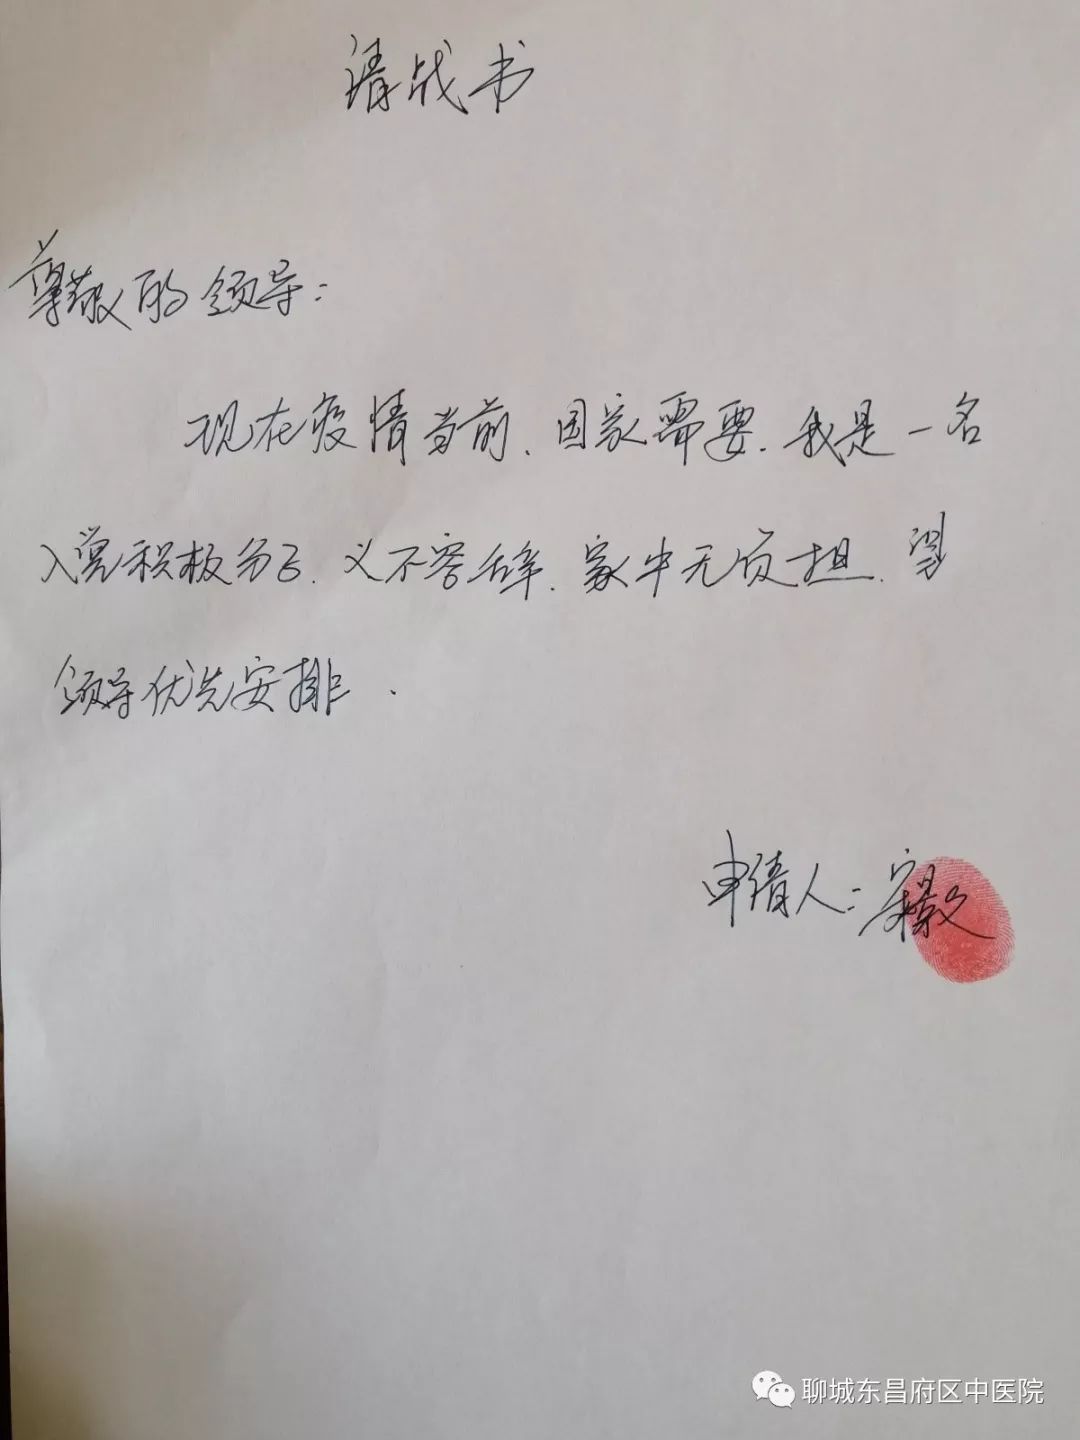 请战书
尊敬的领导：
现在疫情当前、国家需要、我是一名
入党积极分子、义不容辞、家中无负担、望
领导优先安排.
申请人：
聊城东昌府区中医院